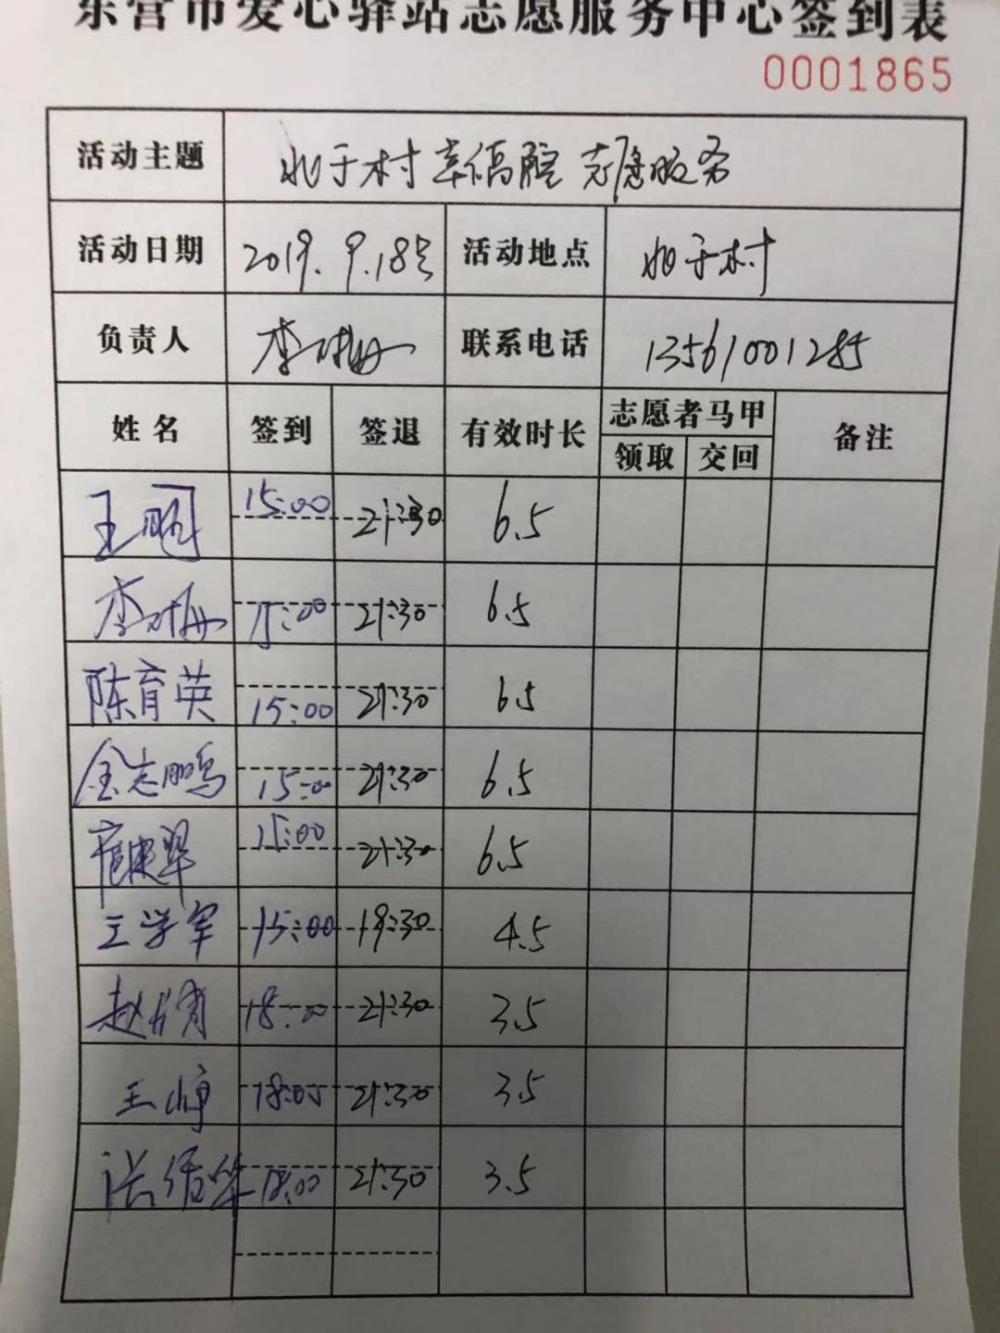 东营市爱心驿站志愿服务中心签到表
0001865
活动主题 于村幸福院志愿服务
活动日期 2019.9.18号 活动地点 于村
负责人 李 联系电话 13561001285
姓名 签到 签退 有效时长 志愿者马甲 备注
领取 交回
王 15:00 21:30 6.5
李 15:00 21:30 6.5
陈育英 15:00 21:30 6.5
金志鹏 15:00 21:30 6.5
翠 15:00 21:30 6.5
王学军 15:00 19:30 4.5
赵 18:00 21:30 3.5
王 18:05 21:30 3.5
洪 18:00 21:30 3.5